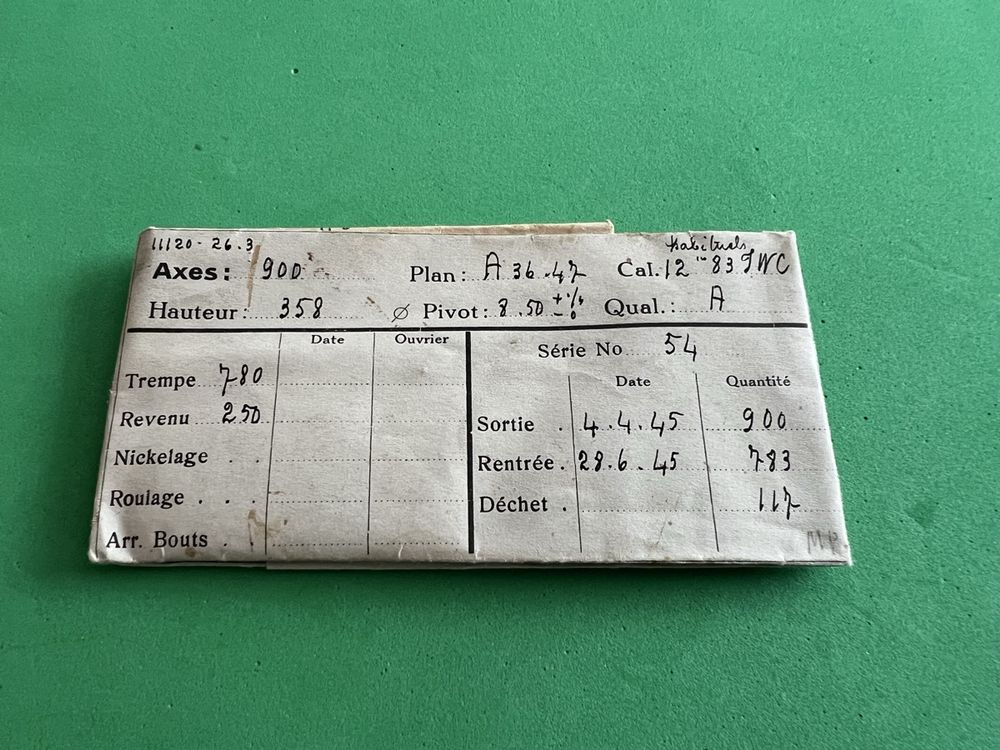 11120 - 26.3
habituels
Axes: 900 Plan: A 36.47 Cal. 12''' 83 IWC
Hauteur: 358 ø Pivot: 8.50 Qual.: A
Date Ouvrier
Trempe 780
Revenu 250
Nickelage
Roulage
Arr. Bouts
Série No 54
Date Quantité
Sortie 4.4.45 900
Rentrée 28.6.45 783
Déchet 117